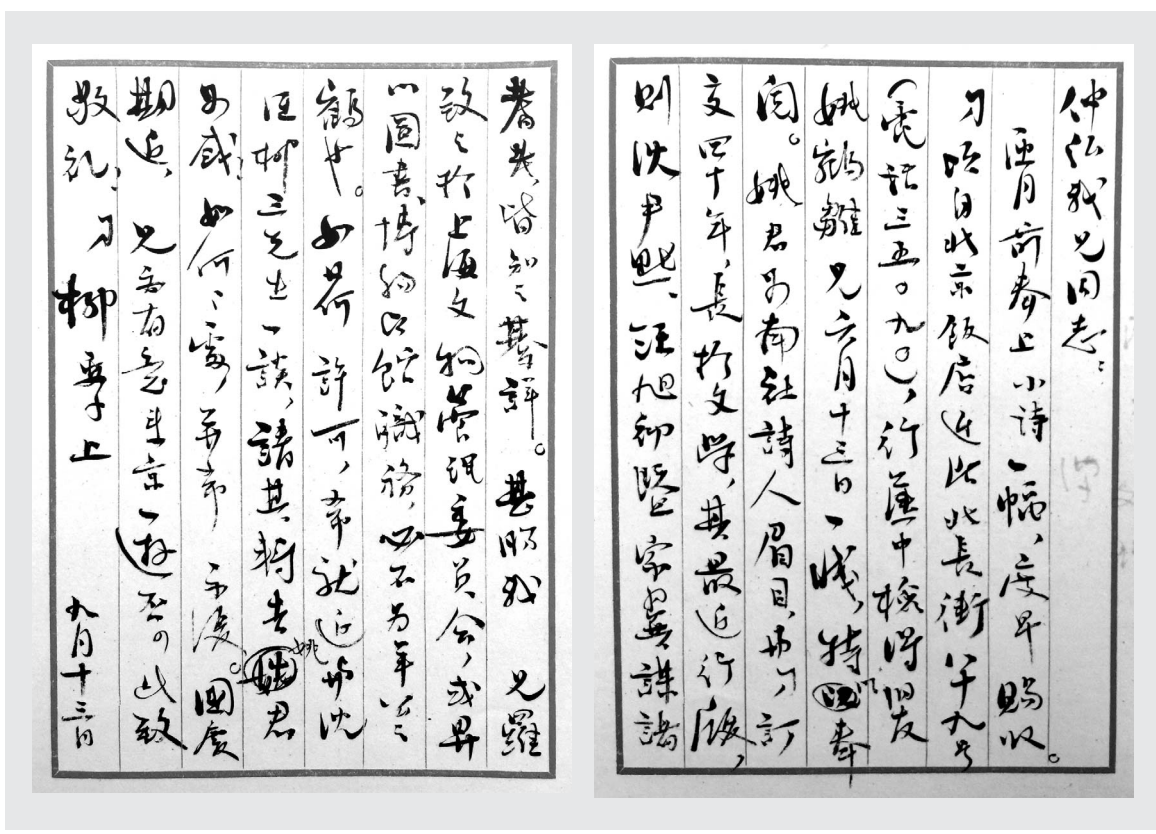 仲弘我兄同志：
两月前奉上小诗一幅，度早 赐收。
弟顷自北京饭店迁居北长街八十九号
（电话三五〇九〇），行箧中检得旧友
姚鹓雏兄六月十三日一笺，特以奉
阅。姚君为南社诗人眉目，与弟订
交四十年，长于文学，其最近行履，
则沈尹默、汪旭初暨家翼谋诸
耆英，皆知之甚详。甚盼我 兄罗
致之于上海文物管理委员会，或畀
以图书、博物各馆职务，必不为年公之
鹤也。如荷 许可，希就近与沈
汪柳三先生一谈，请其转告姚君
为感！如何之处，并希 示复。国庆
期近， 兄亦有意来京一游否？此致
敬礼！ 弟 柳亚子上 九月十三日